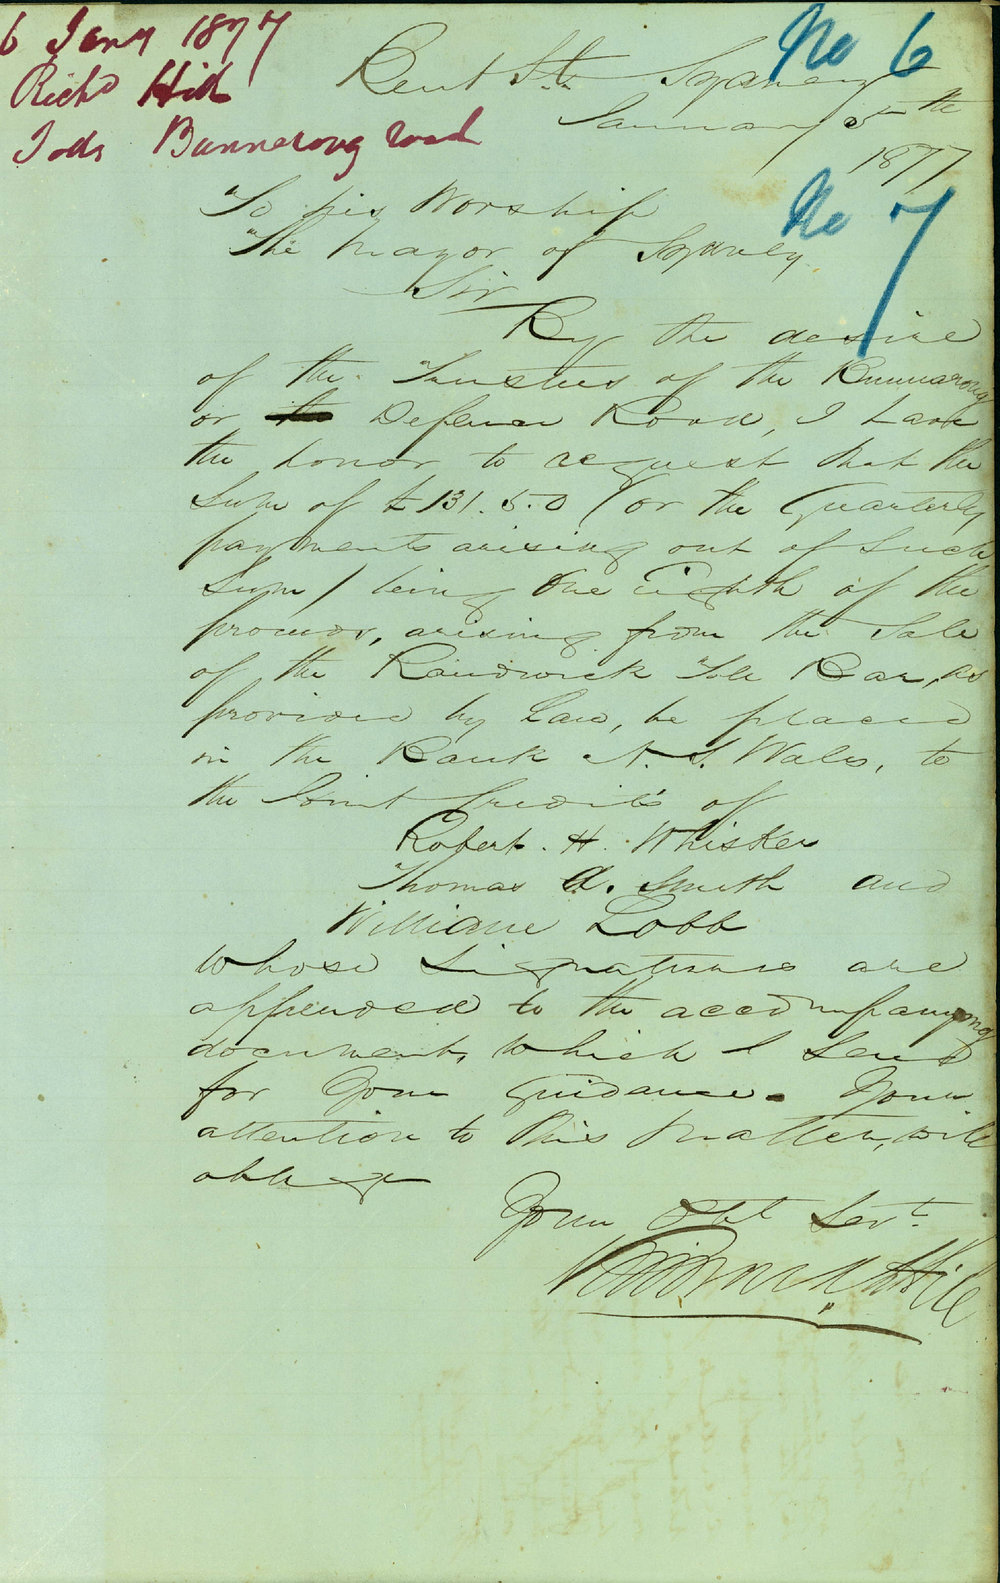 6 Jany 1877
Richd Hill
Tolls Bunnerong road
No 6
No 7
Kent St. Sydney
January 5th
1877
To his Worship
The Mayor of Sydney
Sir
By the desire
of the Trustees of the Bunnarong
or Defence Road, I have
the honor to request that the
Sum of £131.5.0 (or the Quarterly
payments arising out of Such
Sum) being One Eighth of the
proceeds, arising from the Sale
of the Randwick Toll Bar, as
provided by Law, be placed
in the Bank N. S. Wales, to
the Joint Credits of
Robert. H. Whisker
Thomas A. Smith and
William Lobb
whose Signatures are
appended to the accompanying
document, which I Send
for Your guidance. Your
attention to this matter, will
oblige
Your Obt Servt
Richard Hill